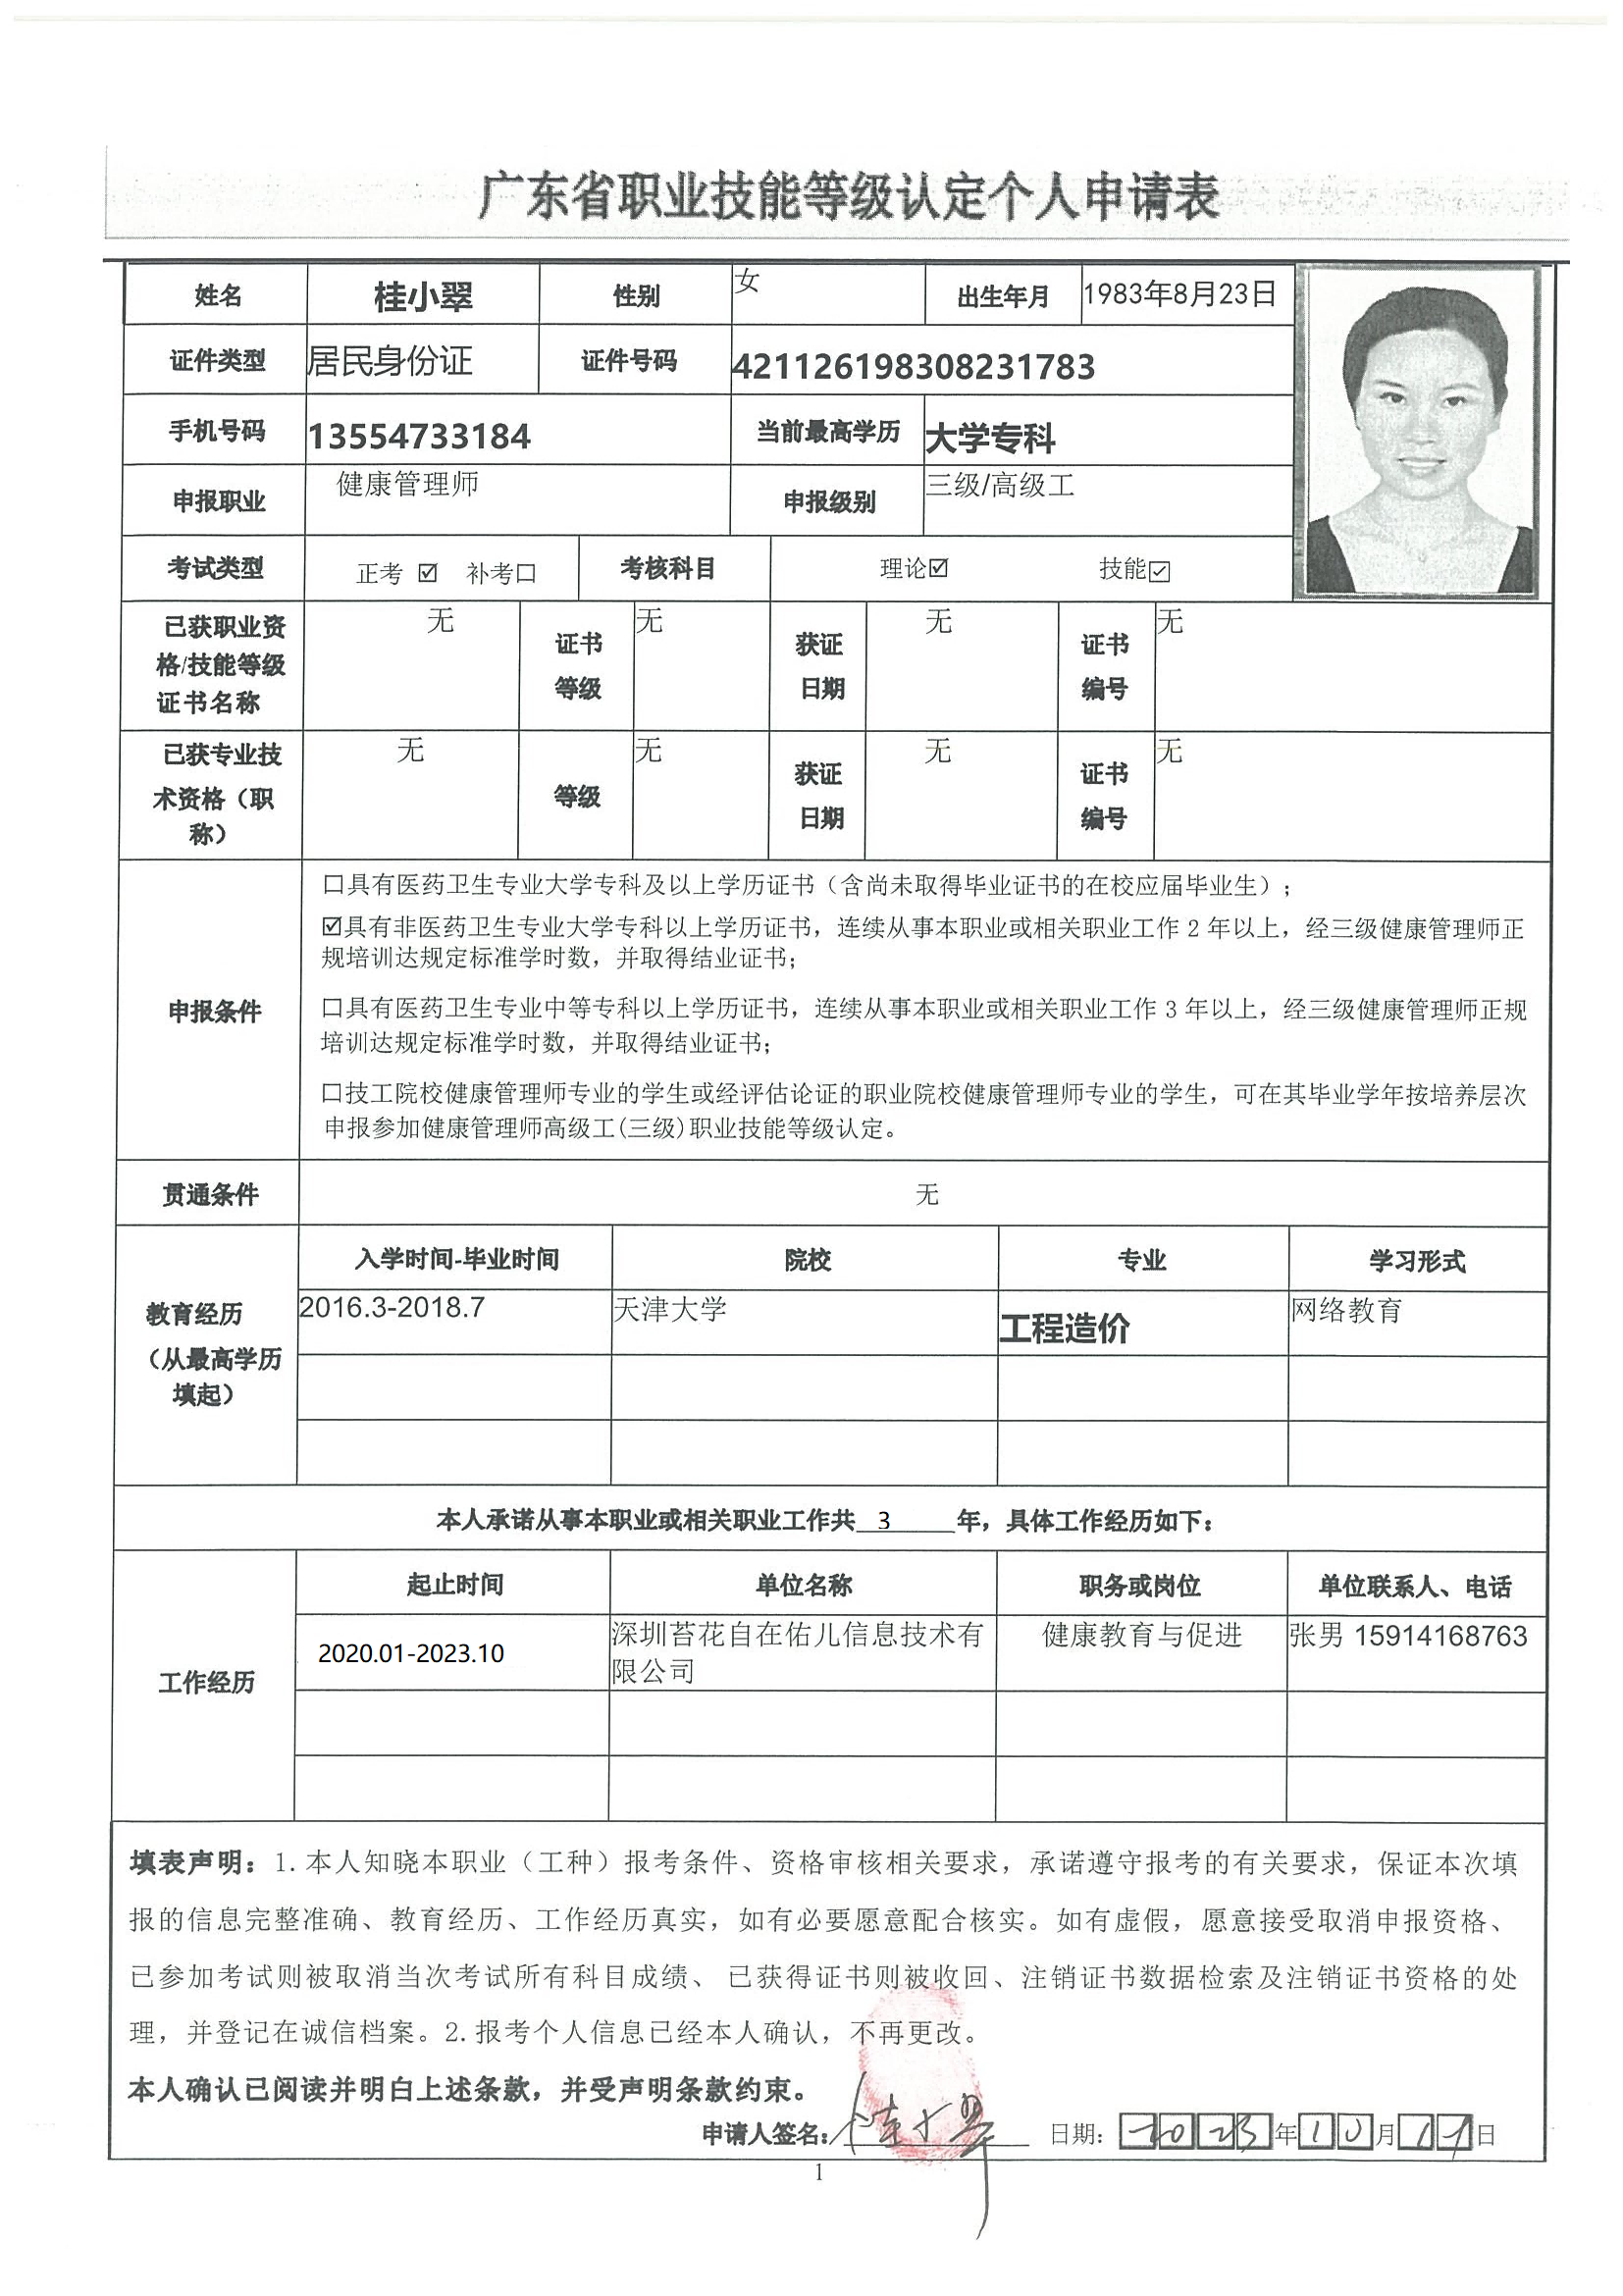 广东省职业技能等级认定个人申请表
姓名 桂小翠 性别 女 出生年月 1983年8月23日
证件类型 居民身份证 证件号码 421126198308231783
手机号码 13554733184 当前最高学历 大学专科
申报职业 健康管理师 申报级别 三级/高级工
考试类型 正考 ☑ 补考☐ 考核科目 理论☑ 技能☑
已获职业资格/技能等级证书名称 无 证书等级 无 获证日期 无 证书编号 无
已获专业技术资格（职称） 无 等级 无 获证日期 无 证书编号 无
申报条件
☐具有医药卫生专业大学专科及以上学历证书（含尚未取得毕业证书的在校应届毕业生）；
☑具有非医药卫生专业大学专科以上学历证书，连续从事本职业或相关职业工作 2 年以上，经三级健康管理师正
规培训达规定标准学时数，并取得结业证书；
☐具有医药卫生专业中等专科以上学历证书，连续从事本职业或相关职业工作 3 年以上，经三级健康管理师正规
培训达规定标准学时数，并取得结业证书；
☐技工院校健康管理师专业的学生或经评估论证的职业院校健康管理师专业的学生，可在其毕业学年按培养层次
申报参加健康管理师高级工(三级)职业技能等级认定。
贯通条件 无
教育经历（从最高学历填起）
入学时间-毕业时间 院校 专业 学习形式
2016.3-2018.7 天津大学 工程造价 网络教育
本人承诺从事本职业或相关职业工作共 3 年，具体工作经历如下：
工作经历
起止时间 单位名称 职务或岗位 单位联系人、电话
2020.01-2023.10 深圳苔花自在佑儿信息技术有限公司 健康教育与促进 张男 15914168763
填表声明：1.本人知晓本职业（工种）报考条件、资格审核相关要求，承诺遵守报考的有关要求，保证本次填
报的信息完整准确、教育经历、工作经历真实，如有必要愿意配合核实。如有虚假，愿意接受取消申报资格、
已参加考试则被取消当次考试所有科目成绩、 已获得证书则被收回、注销证书数据检索及注销证书资格的处
理，并登记在诚信档案。2.报考个人信息已经本人确认，不再更改。
本人确认已阅读并明白上述条款，并受声明条款约束。
申请人签名：桂小翠 日期：2023年10月17日
1